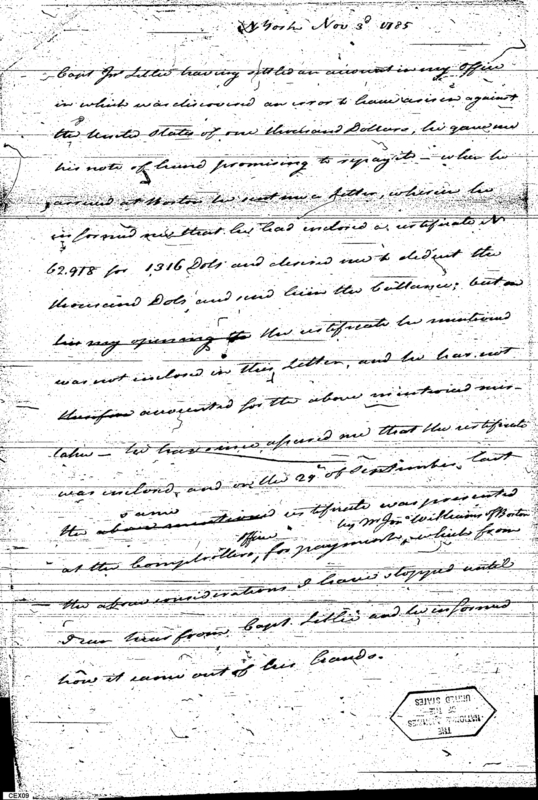 N York Nov 3d 1785
Capt Jno Lillie having settled an account in my Office
in which was discovered an error to have arisen against
the United States of one thousand Dollars, he gave me
his note of hand promising to repay it — when he
arrived at Boston he sent me a letter, wherein he
informed me that he had inclosed a certificate N
62.918 for 1316 Dols and desired me to deduct the
thousand Dols, and send him the ballance; but on
his my opening to the certificate he mentioned
was not inclosed in this Letter, and he has not
therefore accounted for the above mentioned mis-
take — he has since assured me that the certificate
was inclosed, and on the 29th of September last
same
the above mentioned certificate was presented
Office by Mr Jno Williams of Boston
at the Comptrollers, for payment, which from
the above considerations I have stopped until
I can hear from Capt Lillie and be informed
how it came out of his hands.
THE
NATIONAL ARCHIVES
OF THE
UNITED STATES
CEX09